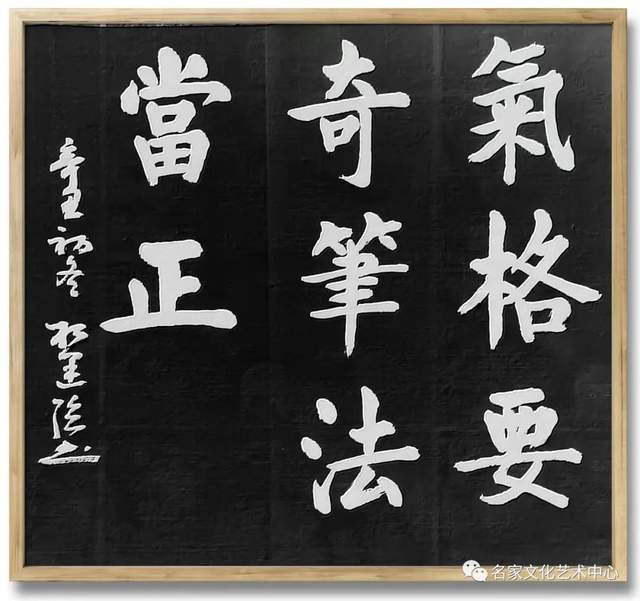 氣格要
奇筆法
當正
辛丑初冬
名家文化艺术中心